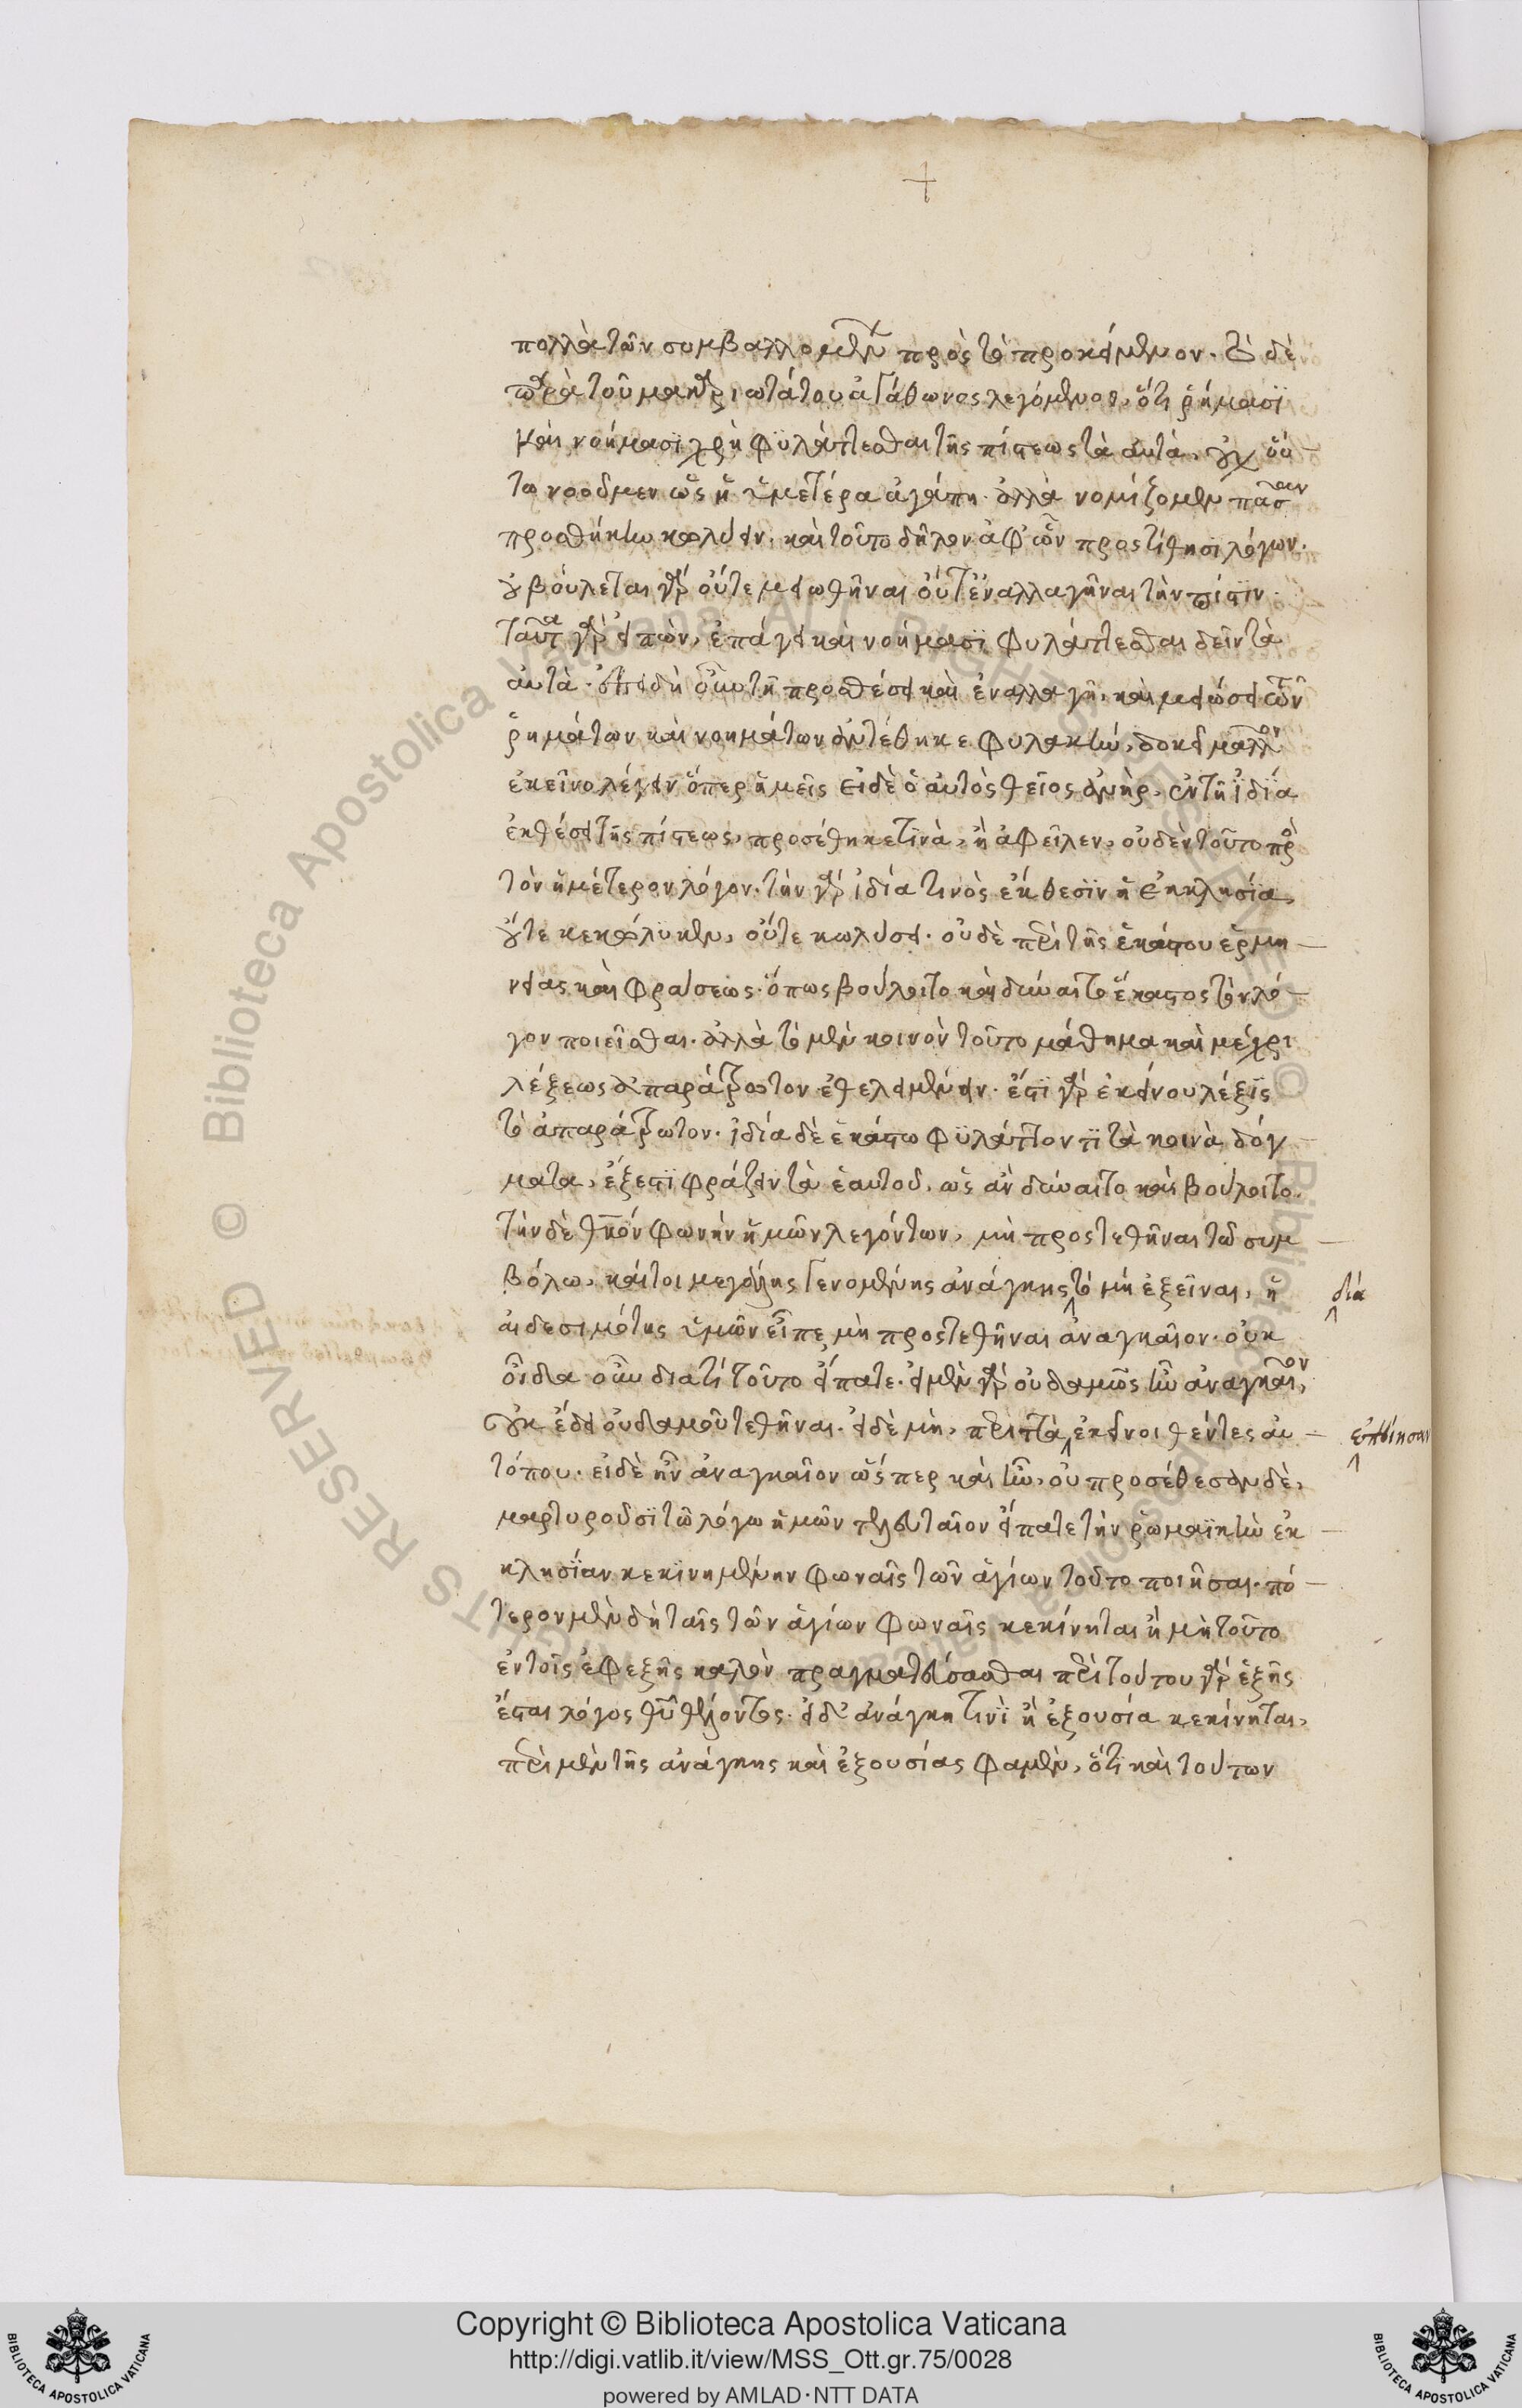 πολλὰ τῶν συμβαλλομένων πρὸς τὸ προκείμενον. τὸ δὲ
παρὰ τοῦ μακαριωτάτου ἀγάθωνος λεγόμενον, ὅτι ῥήμασϊ
καὶ νοήμασϊ χρὴ φϋλάττεσθαι τῆς πίστεως τὰ αὐτὰ, οὐχ οὕ
τω νοοῦμεν ὡς ἡ ὑμετέρα ἀγάπη. ἀλλὰ νομίζομεν πᾶσαν
προσθήκην κωλύειν. καὶ τοῦτο δῆλον ἀφ' ὧν προστίθησϊ λόγων.
οὐ βούλεται γὰρ οὔτε μειωθῆναι οὔτ' ἐναλλαγῆναι τὴν πίστϊν.
ταῦτα γὰρ εἰπὼν, ἐπάγει καὶ νοήμασϊ φυλάττεσθαι δεῖν τὰ
αὐτὰ. ἐπειδὴ οὖν τῆ προσθέσει καὶ ἐναλλαγῆ, καὶ μειώσει τῶν
ῥημάτων καὶ νοημάτων ἀντέθηκε φυλακὴν, δοκεῖ μᾶλλον
ἐκεῖνο λέγειν ὅπερ ἡμεῖς εἰδὲ ὁ αὐτὸς θεῖος ἀνὴρ, ἐν τῆ ἰδία
ἐκθέσει τῆς πίστεως, προσέθηκε τϊνὰ, ἢ ἀφεῖλεν, οὐδὲν τοῦτο πρὸς
τὸν ἡμέτερον λόγον. τὴν γὰρ ἰδία τινὸς ἔκθεσϊν ἡ ἐκκλησία,
οὔτε κεκώλϋκεν, οὔτε κωλύσει. οὐδὲ περὶ τῆς ἑκάστου ἑρμη
νείας καὶ φράσεως. ὅπως βούλοιτο καὶ δύναιτο ἕκαστος τὸν λό
γον ποιεῖσθαι. ἀλλὰ τὸ μὲν κοινὸν τοῦτο μάθημα καὶ μέχρι
λέξεως ἀπαράτρωτον ἐθέλει μένειν. ἔστϊ γὰρ ἐκείνου λέξϊς
τὸ ἀπαράτρωτον. ἰδία δὲ ἑκάστω φϋλάττοντϊ τὰ κοινὰ δόγ
ματα, ἔξεστϊ φράζειν τὰ ἑαυτοῦ, ὡς ἂν δύναιτο καὶ βούλοιτο.
τὴν δὲ θεοτόκον φωνὴν ἡμῶν λεγόντων, μὴ προστεθῆναι τῶ συμ
βόλω, καίτοι μεγάλης γενομένης ἀνάγκης τὸ μὴ ἐξεῖναι, ἡ
διὰ
αἰδεσιμότης ὑμῶν εἶπε μὴ προστεθῆναι ἀναγκαῖον. οὐκ
οἶδα οὖν διατί τοῦτο εἴπατε. εἰ μὲν γὰρ οὐδαμῶς ἦν ἀναγκαῖον,
οὐκ ἔδει οὐδαμοῦ τεθῆναι. εἰ δὲ μὴ, περιττὰ ἐκεῖνοι θέντες αὐ
ἐποίησαν
τόπου. εἰδὲ ἦν ἀναγκαῖον ὥσπερ καὶ ἦν, οὐ προσέθεσαν δὲ,
μαρτυροῦσϊ τῶ λόγω ἡμῶν τελευταῖον εἴπατε τὴν ῥωμαϊκὴν ἐκ
κλησϊαν κεκϊνημένην φωναῖς τῶν ἁγίων τοῦτο ποιῆσαι. πό
τερον μὲν δὴ ταῖς τῶν ἁγίων φωναῖς κεκίνηται ἢ μὴ τοῦτο
ἐν τοῖς ἐφεξῆς καλὸν πραγματεύσασθαι περὶ τούτου γὰρ ἑξῆς
ἔσται λόγος θεοῦ θέλοντος. εἰ δ' ἀνάγκη τινϊ ἢ ἐξουσία κεκίνηται,
περὶ μὲν τῆς ἀνάγκης καὶ ἐξουσίας φαμὲν, ὅτι καὶ τούτων
Copyright © Biblioteca Apostolica Vaticana
http://digi.vatlib.it/view/MSS_Ott.gr.75/0028
powered by AMLAD·NTT DATA